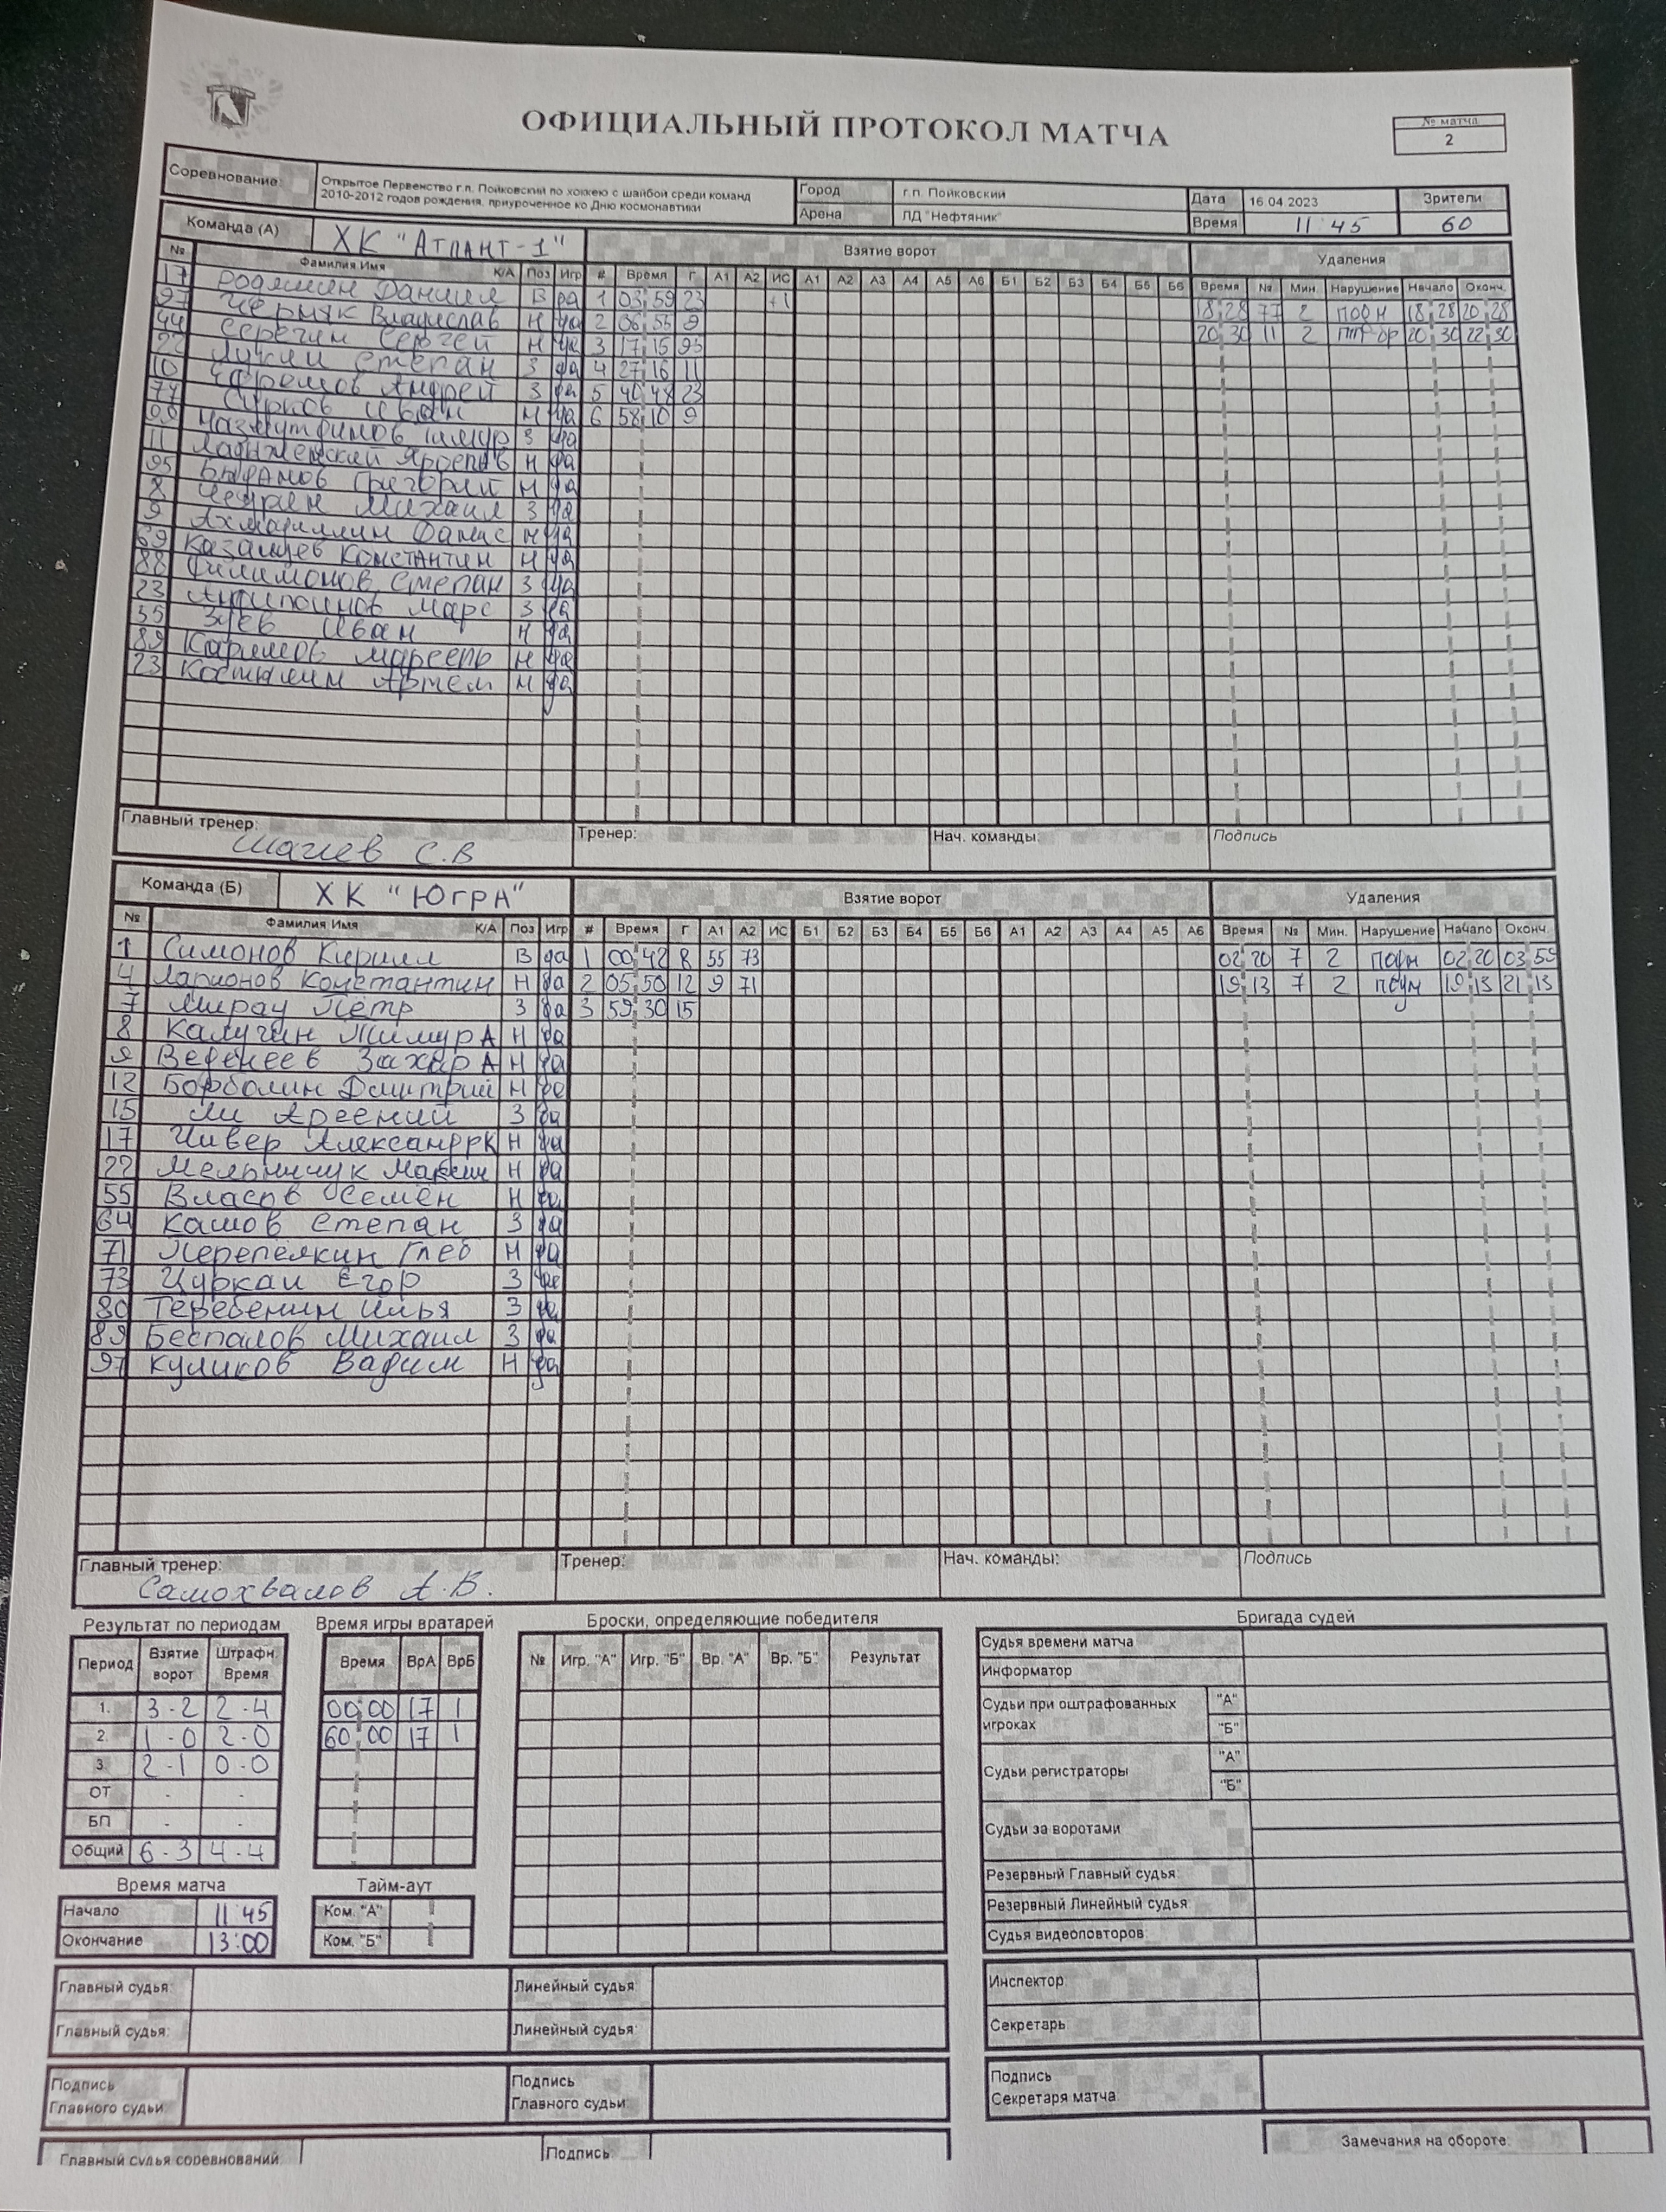 ОФИЦИАЛЬНЫЙ ПРОТОКОЛ МАТЧА
№ матча
2
Соревнование: Открытое Первенство г.п. Пойковский по хоккею с шайбой среди команд 2010-2012 годов рождения, приуроченное ко Дню космонавтики
Город г.п. Пойковский Дата 16.04.2023 Зрители
Арена ЛД "Нефтяник" Время 11 45 60
Команда (А) ХК "Атлант-1" Взятие ворот Удаления
№ Фамилия Имя К/А Поз Игр # Время Г А1 А2 ИС А1 А2 А3 А4 А5 А6 Б1 Б2 Б3 Б4 Б5 Б6 Время № Мин. Нарушение Начало Оконч.
17 Даниил В да 1 03 59 23 +1 18 28 77 2 подн 18 28 20 28
97 Черняк Владислав Н да 2 06 55 9 20 30 11 2 20 30 22 30
44 Серегин Сергей Н да 3 17 15 95
22 Лукин Степан З да 4 27 16 11
10 Ефремов Андрей З да 5 40 48 23
77 Сурков Иван Н да 6 58 10 9
99 З да
11 Н да
95 Григорий Н да
8 Михаил З да
9 Н да
69 Казанцев Константин Н да
88 Филимонов Степан З да
23 Марс З да
35 Зуев Иван Н да
89 Каримов Марсель Н да
23 Артем Н да
Главный тренер: С.В Тренер: Нач. команды: Подпись
Команда (Б) ХК "Югра" Взятие ворот Удаления
№ Фамилия Имя К/А Поз Игр # Время Г А1 А2 ИС Б1 Б2 Б3 Б4 Б5 Б6 А1 А2 А3 А4 А5 А6 Время № Мин. Нарушение Начало Оконч.
1 Симонов Кирилл В да 1 00 42 8 55 73 02 20 7 2 подн 02 20 03 59
4 Ларионов Константин Н да 2 05 50 12 9 71 19 13 7 2 19 13 21 13
7 Мирау Пётр З да 3 59 30 15
8 Калугин Тимур А Н да
9 Веденеев Захар А Н да
12 Борболин Дмитрий Н да
15 Ли Арсений З да
17 Чивер Александр К Н да
22 Мельничук Максим Н да
55 Власов Семён Н да
64 Камов Степан З да
71 Перепёлкин Глеб Н да
73 Цуркан Егор З да
80 Теребенин Илья З да
89 Беспалов Михаил З да
97 Куликов Вадим Н да
Главный тренер: Самохвалов А.В. Тренер: Нач. команды: Подпись
Результат по периодам Время игры вратарей Броски, определяющие победителя Бригада судей
Период Взятие ворот Штрафн. Время Время ВрА ВрБ № Игр. "А" Игр. "Б" Вр. "А" Вр. "Б" Результат
1. 3-2 2-4 00 00 17 1
2. 1-0 2-0 60 00 17 1
3. 2-1 0-0
ОТ - -
БП - -
Общий 6-3 4-4
Судья времени матча
Информатор
Судьи при оштрафованных игроках "А" "Б"
Судьи регистраторы "А" "Б"
Судьи за воротами
Резервный Главный судья:
Резервный Линейный судья:
Судья видеоповторов:
Время матча Тайм-аут
Начало 11 45 Ком. "А"
Окончание 13:00 Ком. "Б"
Главный судья: Линейный судья: Инспектор
Главный судья: Линейный судья: Секретарь
Подпись Главного судьи: Подпись Главного судьи: Подпись Секретаря матча:
Главный судья соревнований: Подпись: Замечания на обороте: